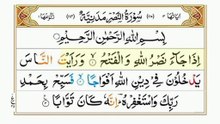 سُوْرَةُ النَّصْرِ مَدَنِيَّةٌ
بِسْمِ اللّٰهِ الرَّحْمٰنِ الرَّحِيْمِ
اِذَا جَآءَ نَصْرُ اللّٰهِ وَالْفَتْحُ ۙ وَرَاَيْتَ النَّاسَ
يَدْخُلُوْنَ فِيْ دِيْنِ اللّٰهِ اَفْوَاجًا ۙ فَسَبِّحْ بِحَمْدِ
رَبِّكَ وَاسْتَغْفِرْهُ ؕ اِنَّهٗ كَانَ تَوَّابًا